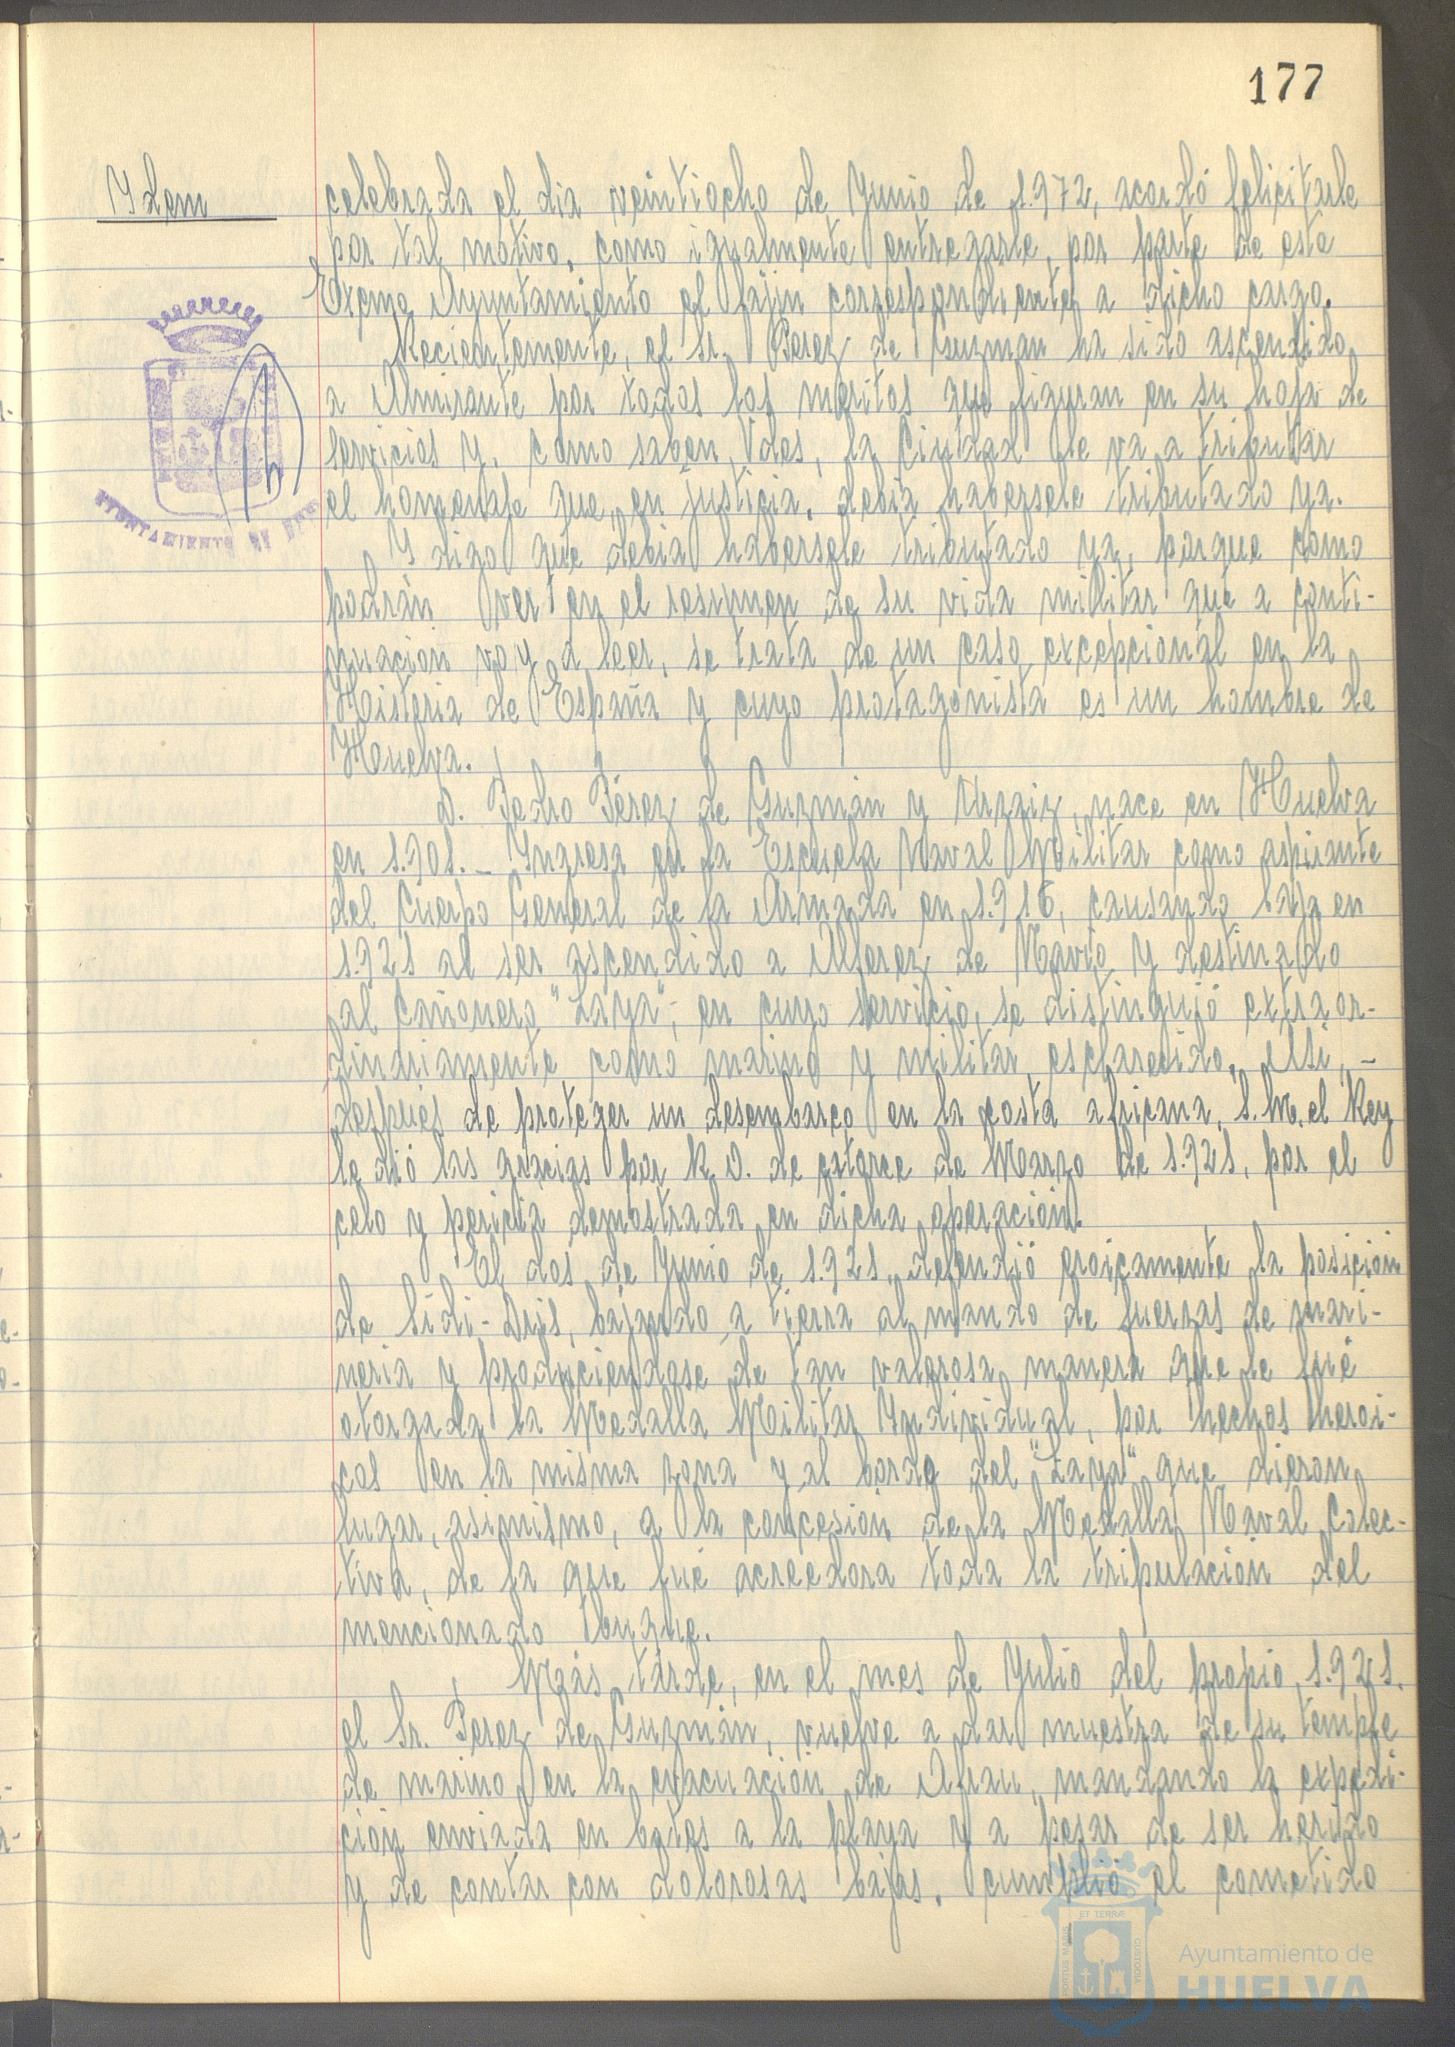 177
Idem
celebrada el dia veintiocho de Junio de 1.972, acordó felicitarle
por tal motivo, como igualmente entregarle, por parte de este
Excmo Ayuntamiento el fajin correspondiente a dicho cargo.
Recientemente, el Sr. Perez de Guzman ha sido ascendido
a Almirante por todos los meritos que figuran en su hoja de
servicios y, como saben Vdes, la Ciudad le va a tributar
el homenaje que, en justicia, debia habersele tributado ya.
Y digo que debia habersele tributado ya, porque como
podrán ver en el resumen de su vida militar que a conti-
nuacion voy a leer, se trata de un caso excepcional en la
Historia de España y cuyo protagonista es un hombre de
Huelva.
D. Pedro Pérez de Guzmán y Urzaiz, nace en Huelva
en 1.901.- Ingresa en la Escuela Naval Militar como aspirante
del Cuerpo General de la Armada en 1.916, causando baja en
1.921 al ser ascendido a Alferez de Navio y destinado
al cañonero "Laya"; en cuyo servicio, se distinguió extraor-
dinariamente como marino y militar esclarecido. Asi, -
después de proteger un desembarco en la costa africana, S.M. el Rey
le dió las gracias por R.O. de catorce de Marzo de 1.921, por el
celo y pericia demostrada en dicha operación.
El dos de Junio de 1.921, defendió eroicamente la posición
de Sidi-Dris, bajando a tierra al mando de fuerzas de mari-
neria y produciendose de tan valerosa manera que le fué
otorgada la Medalla Militar Individual, por hechos heroi-
cos en la misma zona y al bordo del "Laya" que dieron
lugar, asimismo, a la concesión de la Medalla Naval Colec-
tiva, de la que fué acreedora toda la tripulación del
mencionado buque.
Más tarde, en el mes de Julio del propio 1.921.
el Sr. Perez de Guzmán, vuelve a dar muestra de su temple
de marino en la evacuación de Afrau, mandando la expedi-
ción enviada en botes a la playa y a pesar de ser herido
y de contar con dolorosas bajas, cumplió el cometido
AYUNTAMIENTO DE
PORTUS MARIS
ET TERRÆ
CUSTODIA
Ayuntamiento de
HUELVA